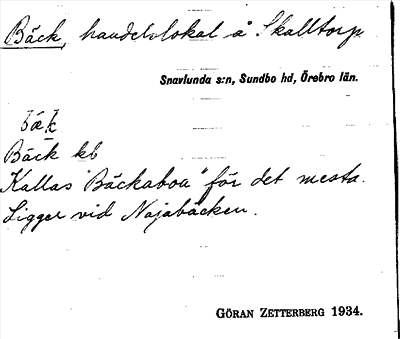 Bäck, handelslokal å Skalltorp
Snavlunda s:n, Sundbo hd, Örebro län.
bäk
Bäck kb
Kallas "Bäckaboa" för det mesta.
Ligger vid Nojabäcken.
GÖRAN ZETTERBERG 1934.